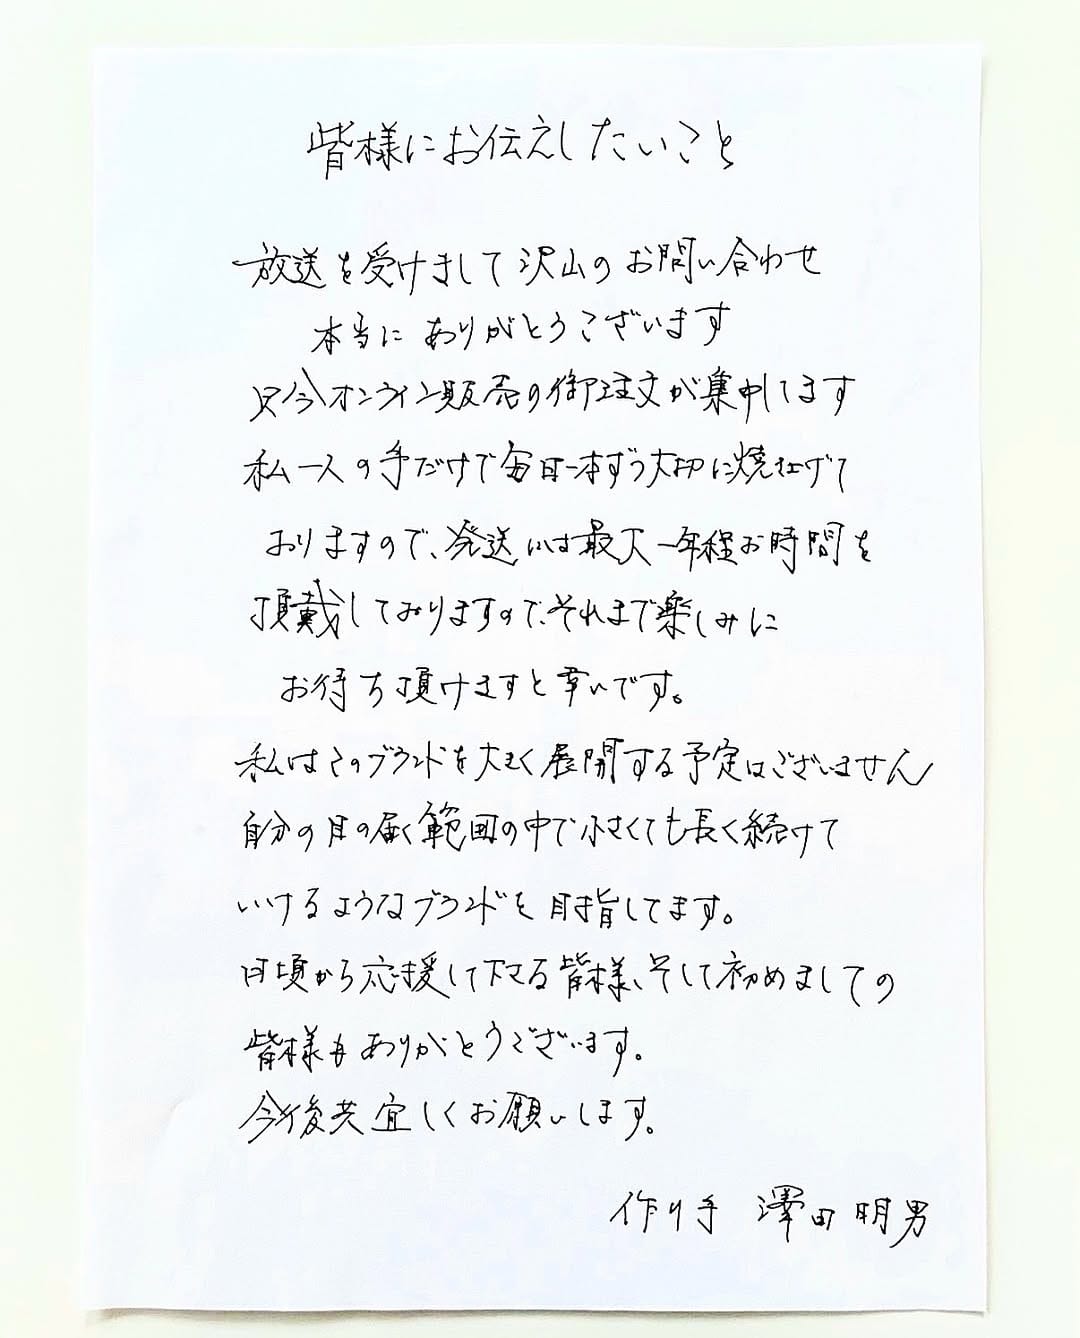 皆様にお伝えしたいこと
放送を受けまして沢山のお問い合わせ
本当にありがとうございます
只今オンライン販売の御注文が集中してます
私一人の手だけで毎日一本ずつ大切に焼上げて
おりますので、発送には最大一年程お時間を
頂戴しておりますので、それまで楽しみに
お待ち頂けますと幸いです。
私はこのブランドを大きく展開する予定はございません
自分の目の届く範囲の中で小さくても長く続けて
いけるようなブランドを目指してます。
日頃から応援して下さる皆様、そして初めましての
皆様もありがとうございます。
今後共宜しくお願いします。
作り手 澤田明男